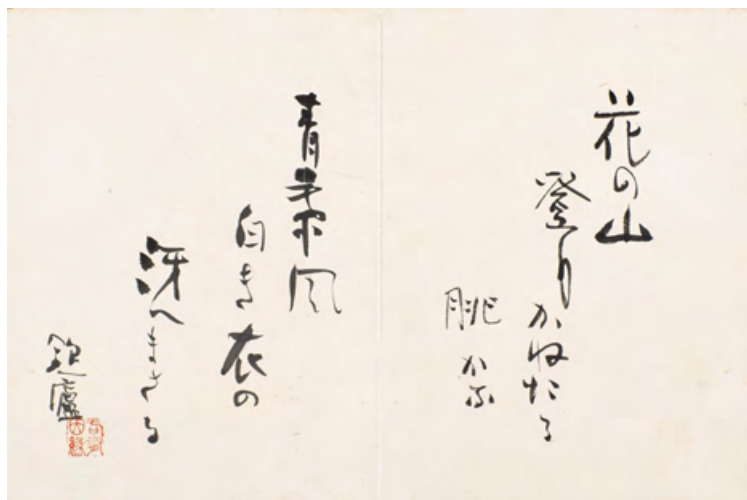 花の山
登りかねたる
眺かな
青葉風
白き衣の
冴へまさる